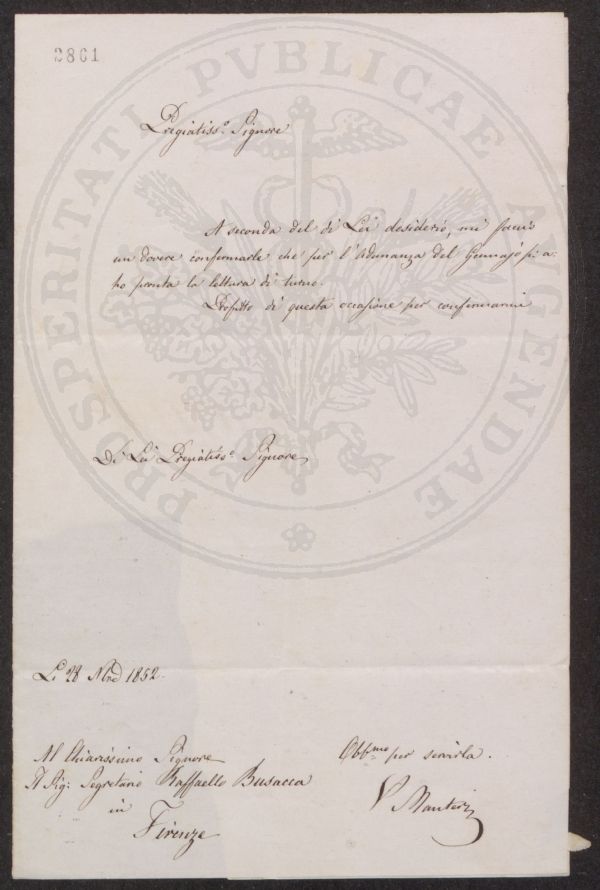 2861
PROSPERITATI PVBLICAE AVGENDAE
Pregiatiss.o Signore
A seconda del di Lei desiderio, mi faccio
un dovere confermarle che per l'Adunanza del Gennajo p:
ho pronta la lettura di turno.
Profitto di questa occasione per confermarmi
Di Lei Pregiatiss.o Signore
Li 28 1852.
Al Chiarissimo Signore
Il Sig: Segretario Raffaello Busacca
in
Firenze
Obb.mo per servirla.
V